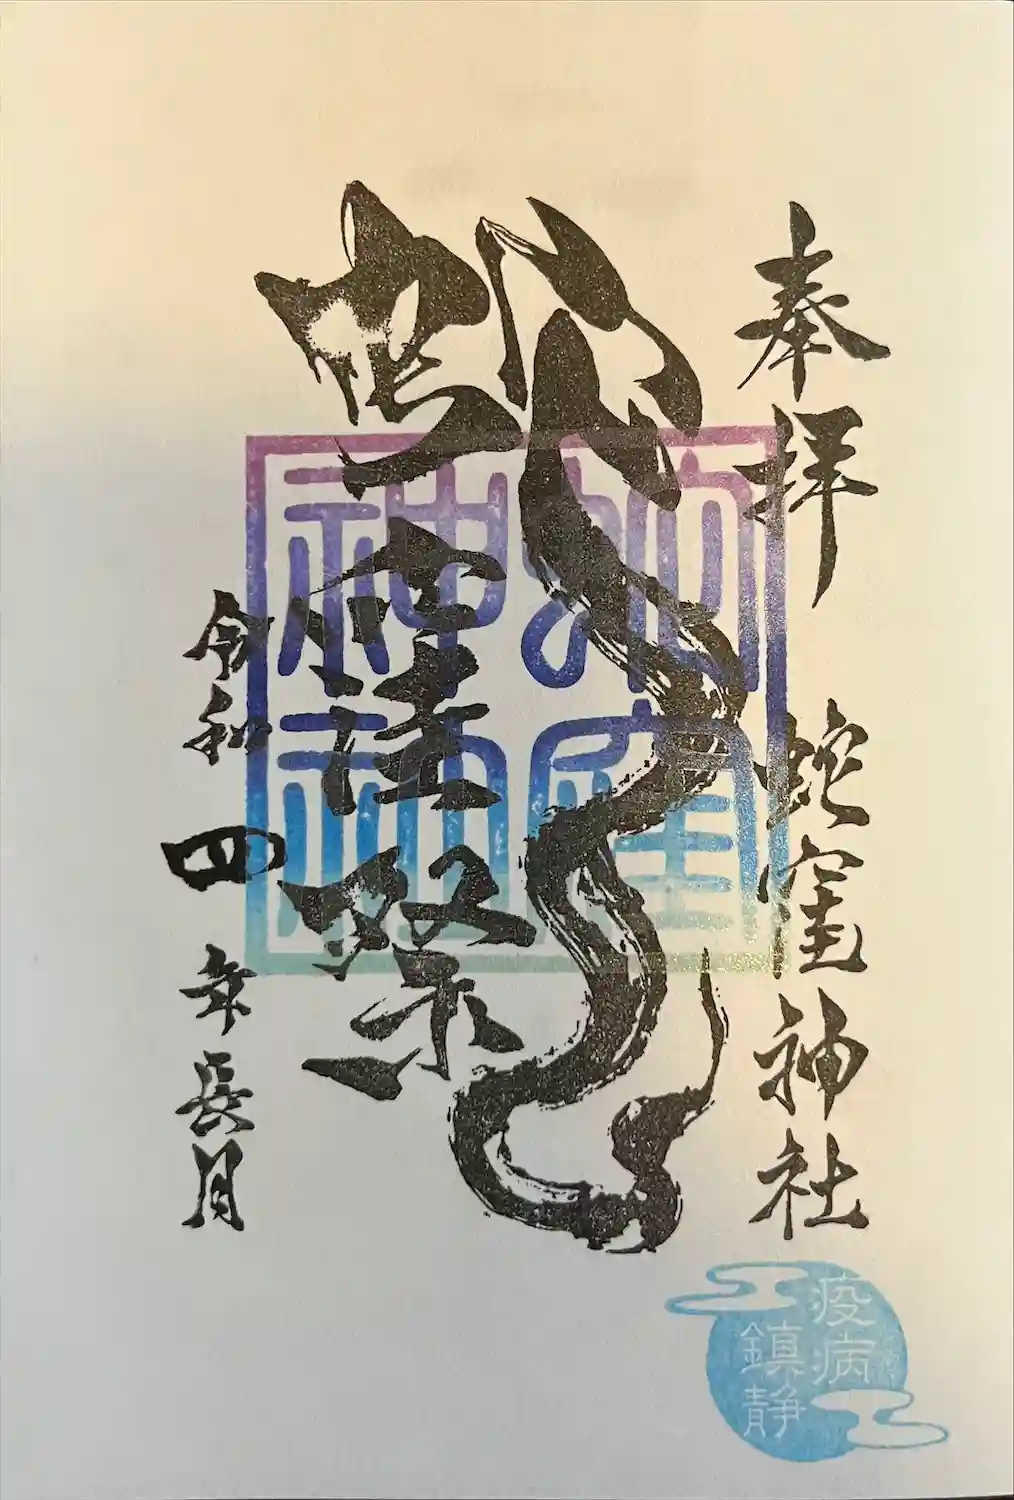 奉拝 蛇窪神社
蛇窪神社
令和四年長月
疫病
鎮静